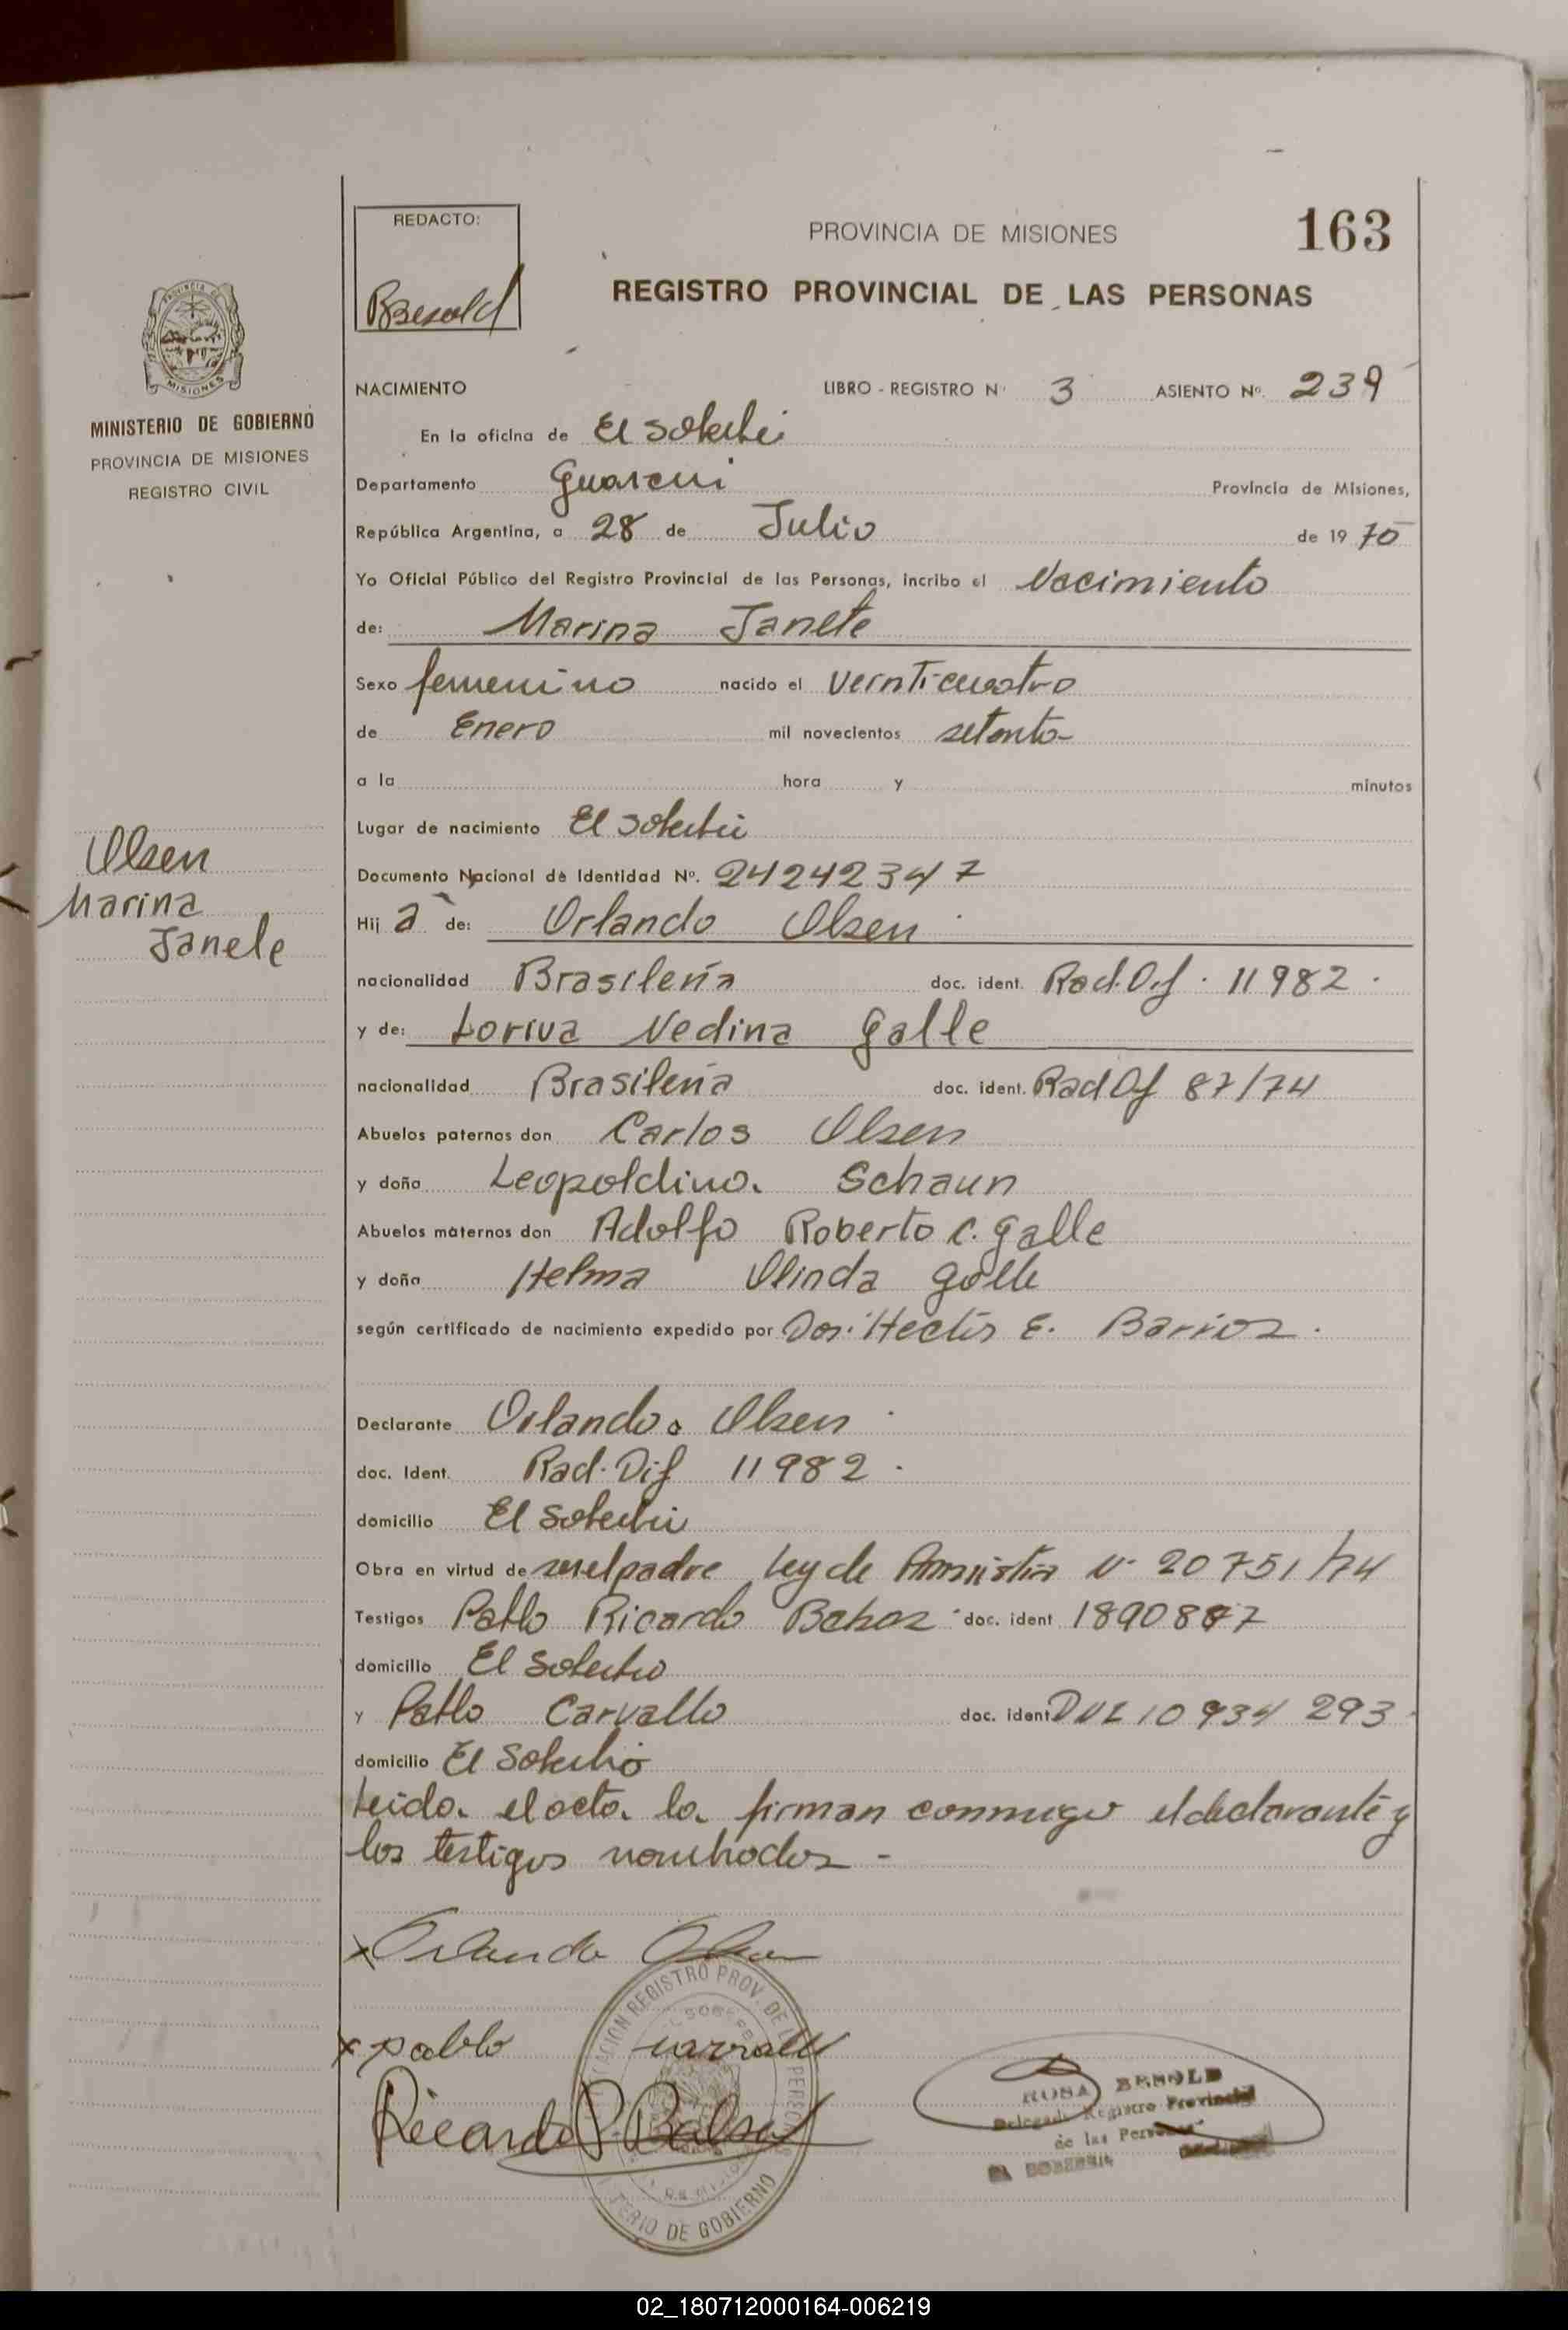 REDACTO:
Besold
PROVINCIA DE MISIONES
163
REGISTRO PROVINCIAL DE LAS PERSONAS
PROVINCIA DE
MISIONES
MINISTERIO DE GOBIERNO
PROVINCIA DE MISIONES
REGISTRO CIVIL
NACIMIENTO LIBRO - REGISTRO Nº 3 ASIENTO Nº. 239
En la oficina de El Soberbio
Departamento Guarani Provincia de Misiones,
República Argentina, a 28 de Julio de 19
Yo Oficial Público del Registro Provincial de las Personas, incribo el Nacimiento
de: Marina Janete
Sexo femenino nacido el veinticuatro
de Enero mil novecientos setenta
a la hora y minutos
Lugar de nacimiento El Soberbio
Olsen
Marina
Janete
Documento Nacional de Identidad Nº. 24242347
Hij a de: Orlando Olsen
nacionalidad Brasileña doc. ident. Rad. Dif. 11982.
y de: Loriva Nedina Galle
nacionalidad Brasileña doc. ident. Rad Dif 87/74
Abuelos paternos don Carlos Olsen
y doña Leopoldina Schaun
Abuelos maternos don Adolfo Roberto C. Galle
y doña Helma Olinda Galle
según certificado de nacimiento expedido por Hector E. Barrios.
Declarante Orlando Olsen
doc. Ident. Rad. Dif 11982.
domicilio El Soberbio
Obra en virtud de ser el padre Ley de Amnistia Nº 20751/74
Testigos Pablo Ricardo doc. ident
domicilio El Soberbio
y Pablo Carvallo doc. ident DNI 10934293
domicilio El Soberbio
Leida el acta la firman conmigo el declarante y
los testigos nombrados -
x Orlando Olsen
x pablo carvallo
Ricardo P.
REGISTRO PROV. DE PERSONAS
DE GOBIERNO
ROSA BESOLD
Delegada Registro Provincial
de las Personas
EL SOBERBIO
02_180712000164-006219